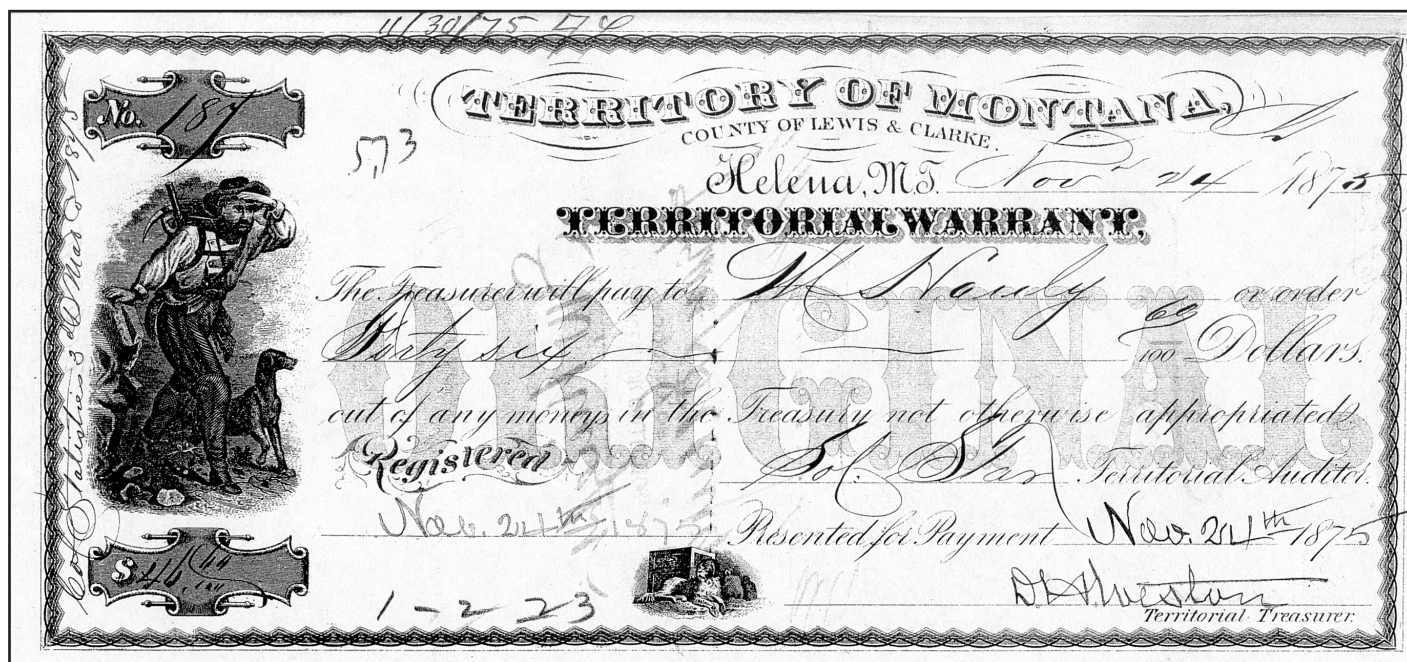 11/30/75
No. 187
TERRITORY OF MONTANA,
COUNTY OF LEWIS & CLARKE.
573
Helena, M.T. Nov 24 1875
TERRITORIAL WARRANT,
The Treasurer will pay to or order
Forty six 60/100 Dollars.
ORIGINAL
out of any moneys in the Treasury not otherwise appropriated.
Registered Sol. Star Territorial Auditor.
Nov. 24th 1875 Presented for Payment Nov. 24th 1875
$46.60
1-2-23
Territorial Treasurer.